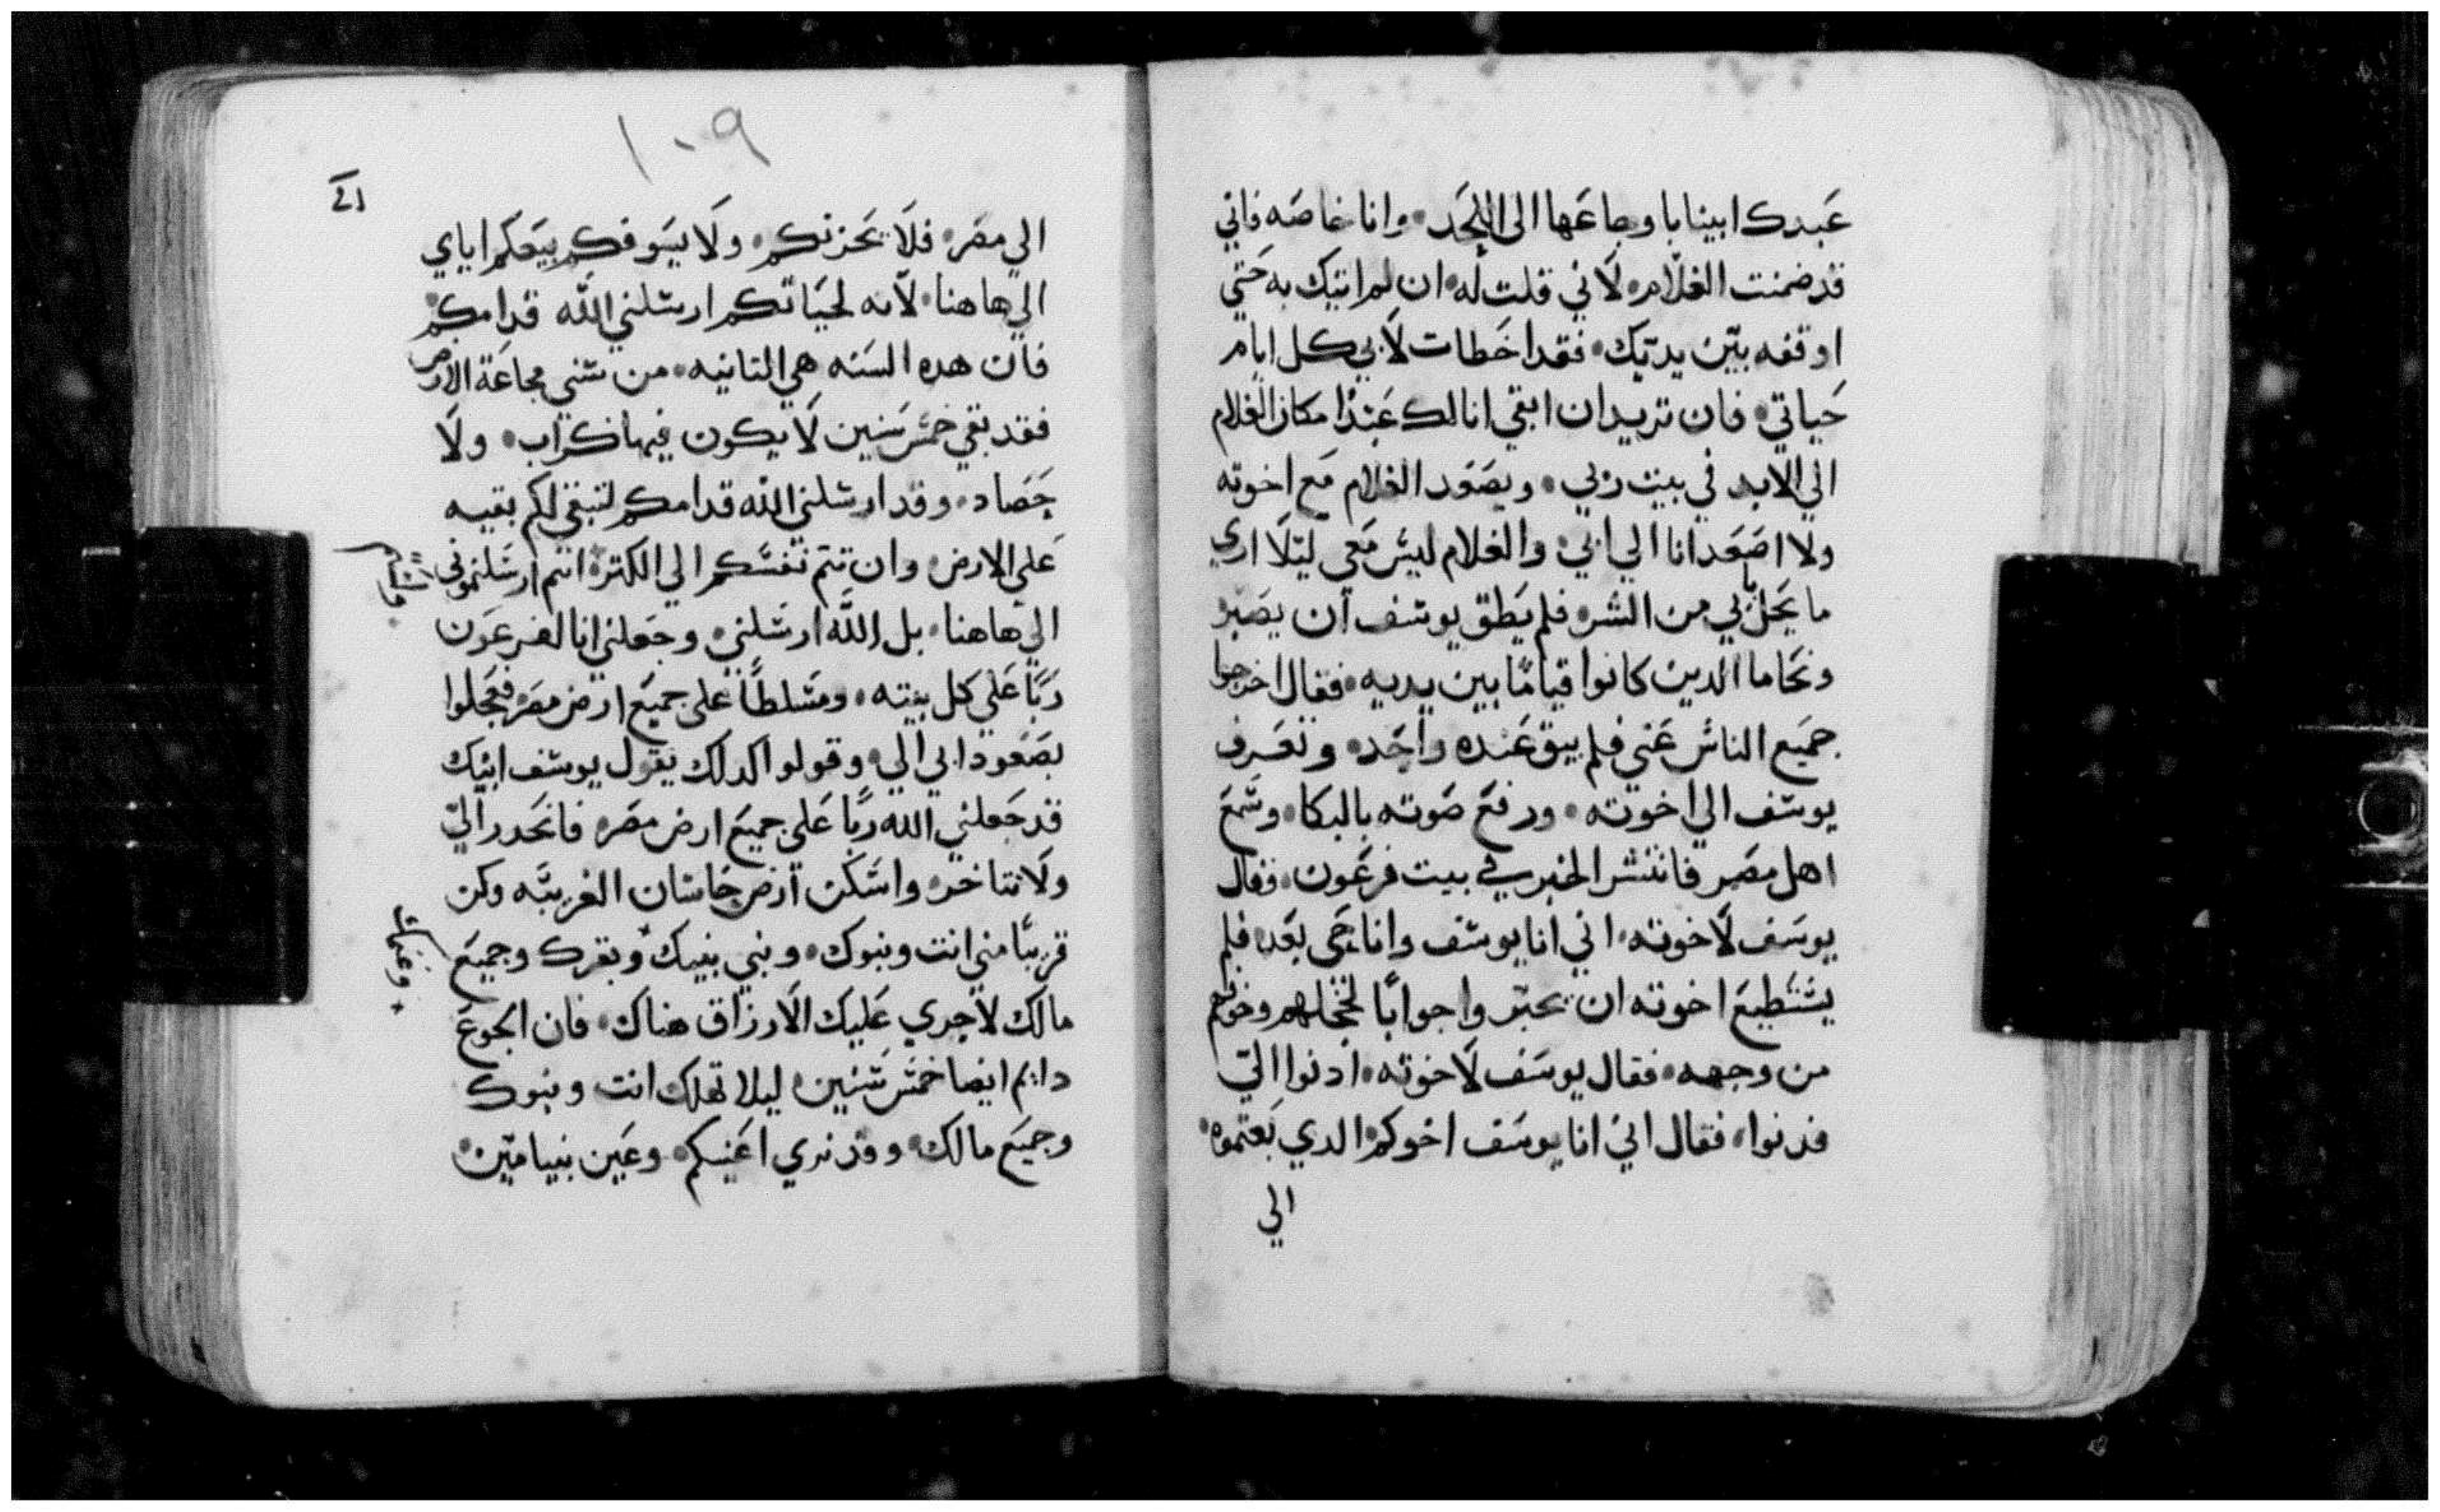 عبدك ابينا باوجاعها الى اللحد، وانا خاصه فاني
قد ضمنت الغلام، لاني قلت له، ان لم اتيك به حتي
اوقفه بين يديك، فقد اخطات لابي كل ايام
حياتي، فان تريد ان ابقي انا لك عبدًا مكان الغلام
الي الابد في بيت ربي، ويصعد الغلام مع اخوته
ولا اصعد انا الي ابي، والغلام ليس معي ليلا اري
ما يحل بابي من الشر، فلم يطق يوسف ان يصبر
ونحا ما الدين كانوا قيامًا بين يديه، فقال اخرجوا
جميع الناس عني فلم يبق عنده واحد، وتعرف
يوسف الي اخوته، ورفع صوته بالبكا، وسمع
اهل مصر فانتشر الخبر في بيت فرعون، فقال
يوسف لاخوته، اني انا يوسف وانا حي بعد، فلم
يستطيع اخوته ان يحيروا جوابًا لخجلهم وخوفهم
من وجهه، فقال يوسف لاخوته، ادنوا الي
فدنوا، فقال اني انا يوسف اخوكم الدي بعتموه،
الي
١٠٩
الي مصر، فلا يحزنكم، ولا يسوفكم بيعكم اياي
الي هاهنا، لانه لحياتكم ارسلني الله قدامكم
فان هده السنه هي التانيه، من سني مجاعة الارض
فقد بقي خمس سنين لا يكون فيها كراب، ولا
حصاد، وقد ارسلني الله قدامكم لتبقي لكم بقيه
علي الارض، وان تتم نفسكم الي الكترة انتم ارسلتموني
الي هاهنا، بل الله ارسلني، وجعلني انا لفرعون
ربًا علي كل بيته، ومسلطًا علي جميع ارض مصر، فعجلوا
بصعود ابي الي، وقولوا كدلك يقول يوسف ابنك
قد جعلني الله ربًا علي جميع ارض مصر، فانحدر الي
ولا تتاخر، واسكن ارض جاسان الغربيه وكن
قريبًا مني انت وبنوك، وبني بنيك وبقرك وجميع
وغنمك
مالك لاجري عليك الارزاق هناك، فان الجوع
دايم ايضا خمس سنين، ليلا تهلك انت وبنوك
وجميع مالك، وقد تري اعينكم، وعين بنيامين،